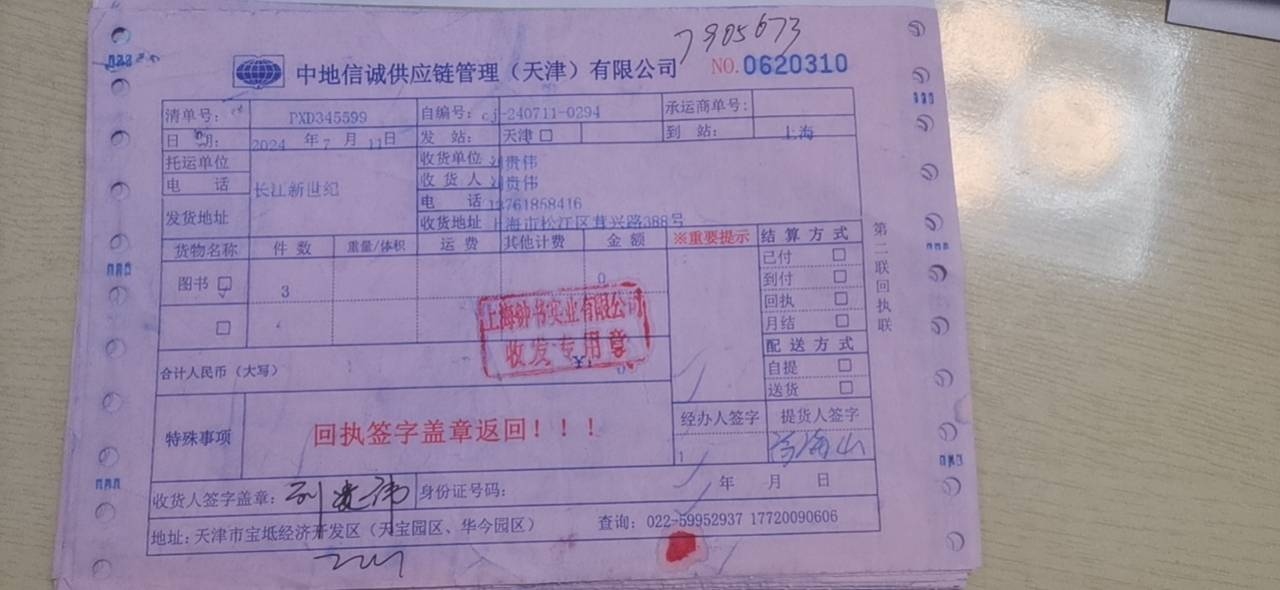 7905673
中地信诚供应链管理（天津）有限公司 NO.0620310
清单号： PXD345599 自编号：cj-240711-0294 承运商单号：
日 期： 2024 年 7 月 11日 发 站： 天津 □ 到 站： 上海
托运单位 长江新世纪 收货单位 刘贵伟
电 话 收 货 人 刘贵伟
电 话 13761858416
发货地址 收货地址 上海市松江区茸兴路388号
货物名称 件 数 重量/体积 运 费 其他计费 金 额 ※重要提示 结 算 方 式
已付 □
图书 □ 3 0 到付 □
回执 □
□ 月结 □
上海钟书实业有限公司
收发专用章
配 送 方 式
合计人民币（大写） 0 自提 □
送货 □
特殊事项 回执签字盖章返回！！！ 经办人签字 提货人签字
收货人签字盖章：刘贵伟 身份证号码： 年 月 日
地址：天津市宝坻经济开发区（天宝园区、华今园区） 查询：022-59952937 17720090606
第二联回执联